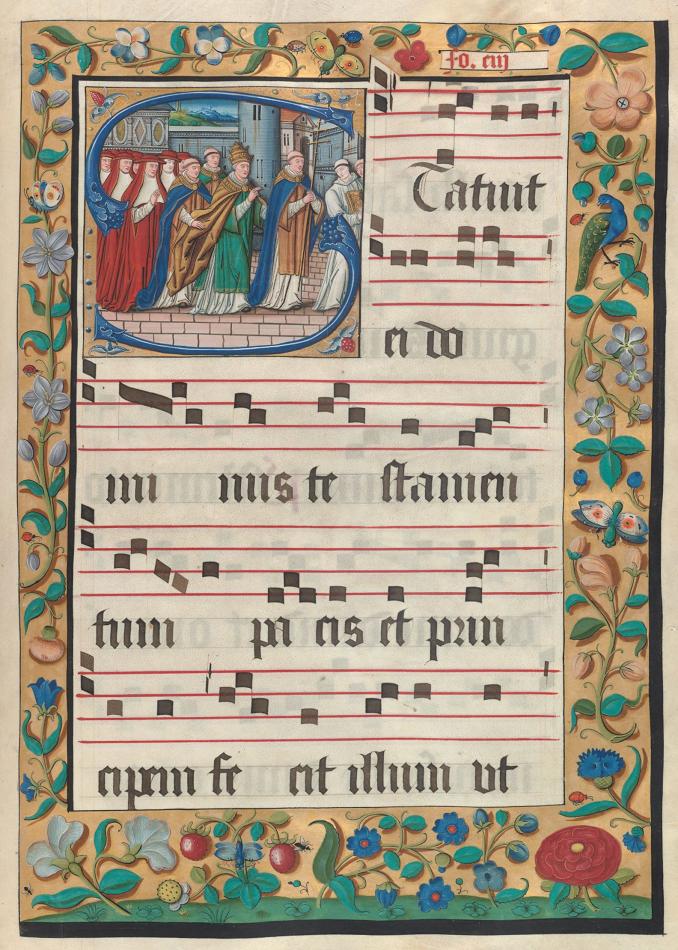 fo. ciij
Statuit
ei do
mi nus te stamen
tum pa cis et prin
cipem fe cit illum ut